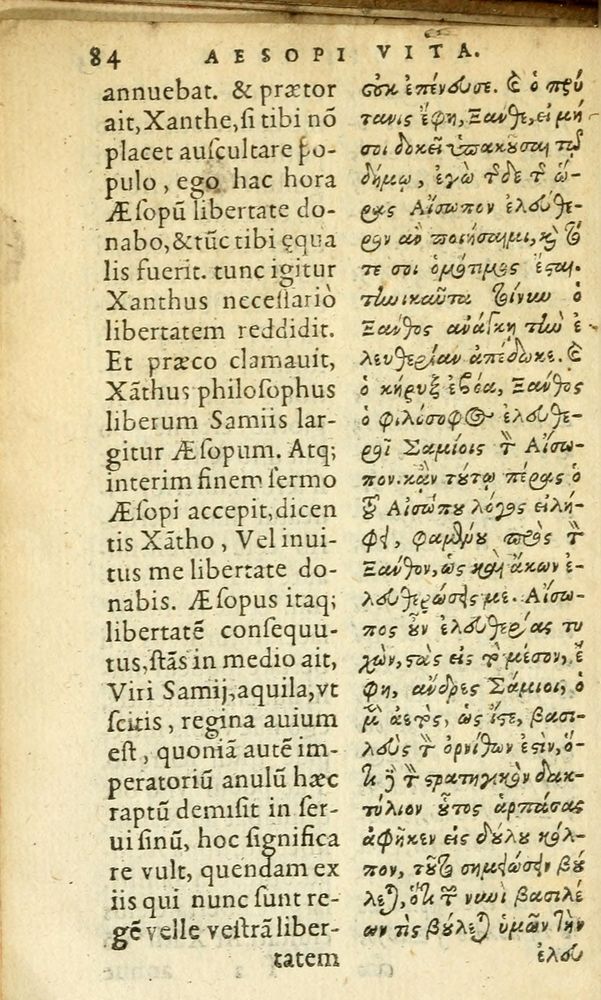 84 AESOPI VITA.
annuebat. & prætor
ait, Xanthe, ſi tibi nō
placet auſcultare po-
pulo, ego hac hora
Æſopū libertate do-
nabo, & tūc tibi ęqua
lis fuerit. tunc igitur
Xanthus neceſſariò
libertatem reddidit.
Et præco clamauit,
Xāthus philoſophus
liberum Samiis lar-
gitur Æſopum. Atq;
interim finem ſermo
Æſopi accepit, dicen
tis Xātho, Vel inui-
tus me libertate do-
nabis. Æſopus itaq;
libertatē conſequu-
tus, ſtās in medio ait,
Viri Samij, aquila, vt
ſcitis, regina auium
eſt, quoniā autē im-
peratoriū anulū hæc
raptū demiſit in ſer-
ui ſinū, hoc ſignifica
re vult, quendam ex
iis qui nunc ſunt re-
gē velle veſtrā liber-
tatem
οὐκ ἐπένευσε. καὶ ὁ πρύ
τανις ἔφη, Ξάνθε, εἰ μή
σοι δοκεῖ ὑπακοῦσαι τῷ
δήμῳ, ἐγὼ τῆσδε τῆς ὥ-
ρας Αἴσωπον ἐλεύθε-
ρον ἂν ποιήσαιμι, καὶ τό
τε σοι ὁμότιμος ἔσται.
τηνικαῦτα τοίνυν ὁ
Ξάνθος ἀνάγκῃ τὴν ἐ-
λευθερίαν ἀπέδωκε. καὶ
ὁ κήρυξ ἐβόα, Ξάνθος
ὁ φιλόσοφος ἐλευθε-
ροῖ Σαμίοις τὸν Αἴσω-
πον. κἂν τούτῳ πέρας ὁ
τοῦ Αἰσώπου λόγος εἰλή-
φει, φαμένου πρὸς τὸν
Ξάνθον, ὡς καὶ ἄκων ἐ-
λευθερώσεις με. Αἴσω-
πος οὖν ἐλευθερίας τυ
χὼν, στὰς εἰς τὸ μέσον, ἔ
φη, ἄνδρες Σάμιοι, ὁ
μὲν ἀετὸς, ὡς ἴστε, βασι-
λεὺς τῶν ὀρνίθων ἐστὶν, ὅ-
τι δὲ τὸν στρατηγικὸν δακ-
τύλιον οὗτος ἁρπάσας
ἀφῆκεν εἰς δούλου κόλ-
πον, τοῦτο σημαίνειν βού
λεται, ὅτι τῶν νυνὶ βασιλέ
ων τὶς βούλεται ὑμῶν τὴν
ἐλευ